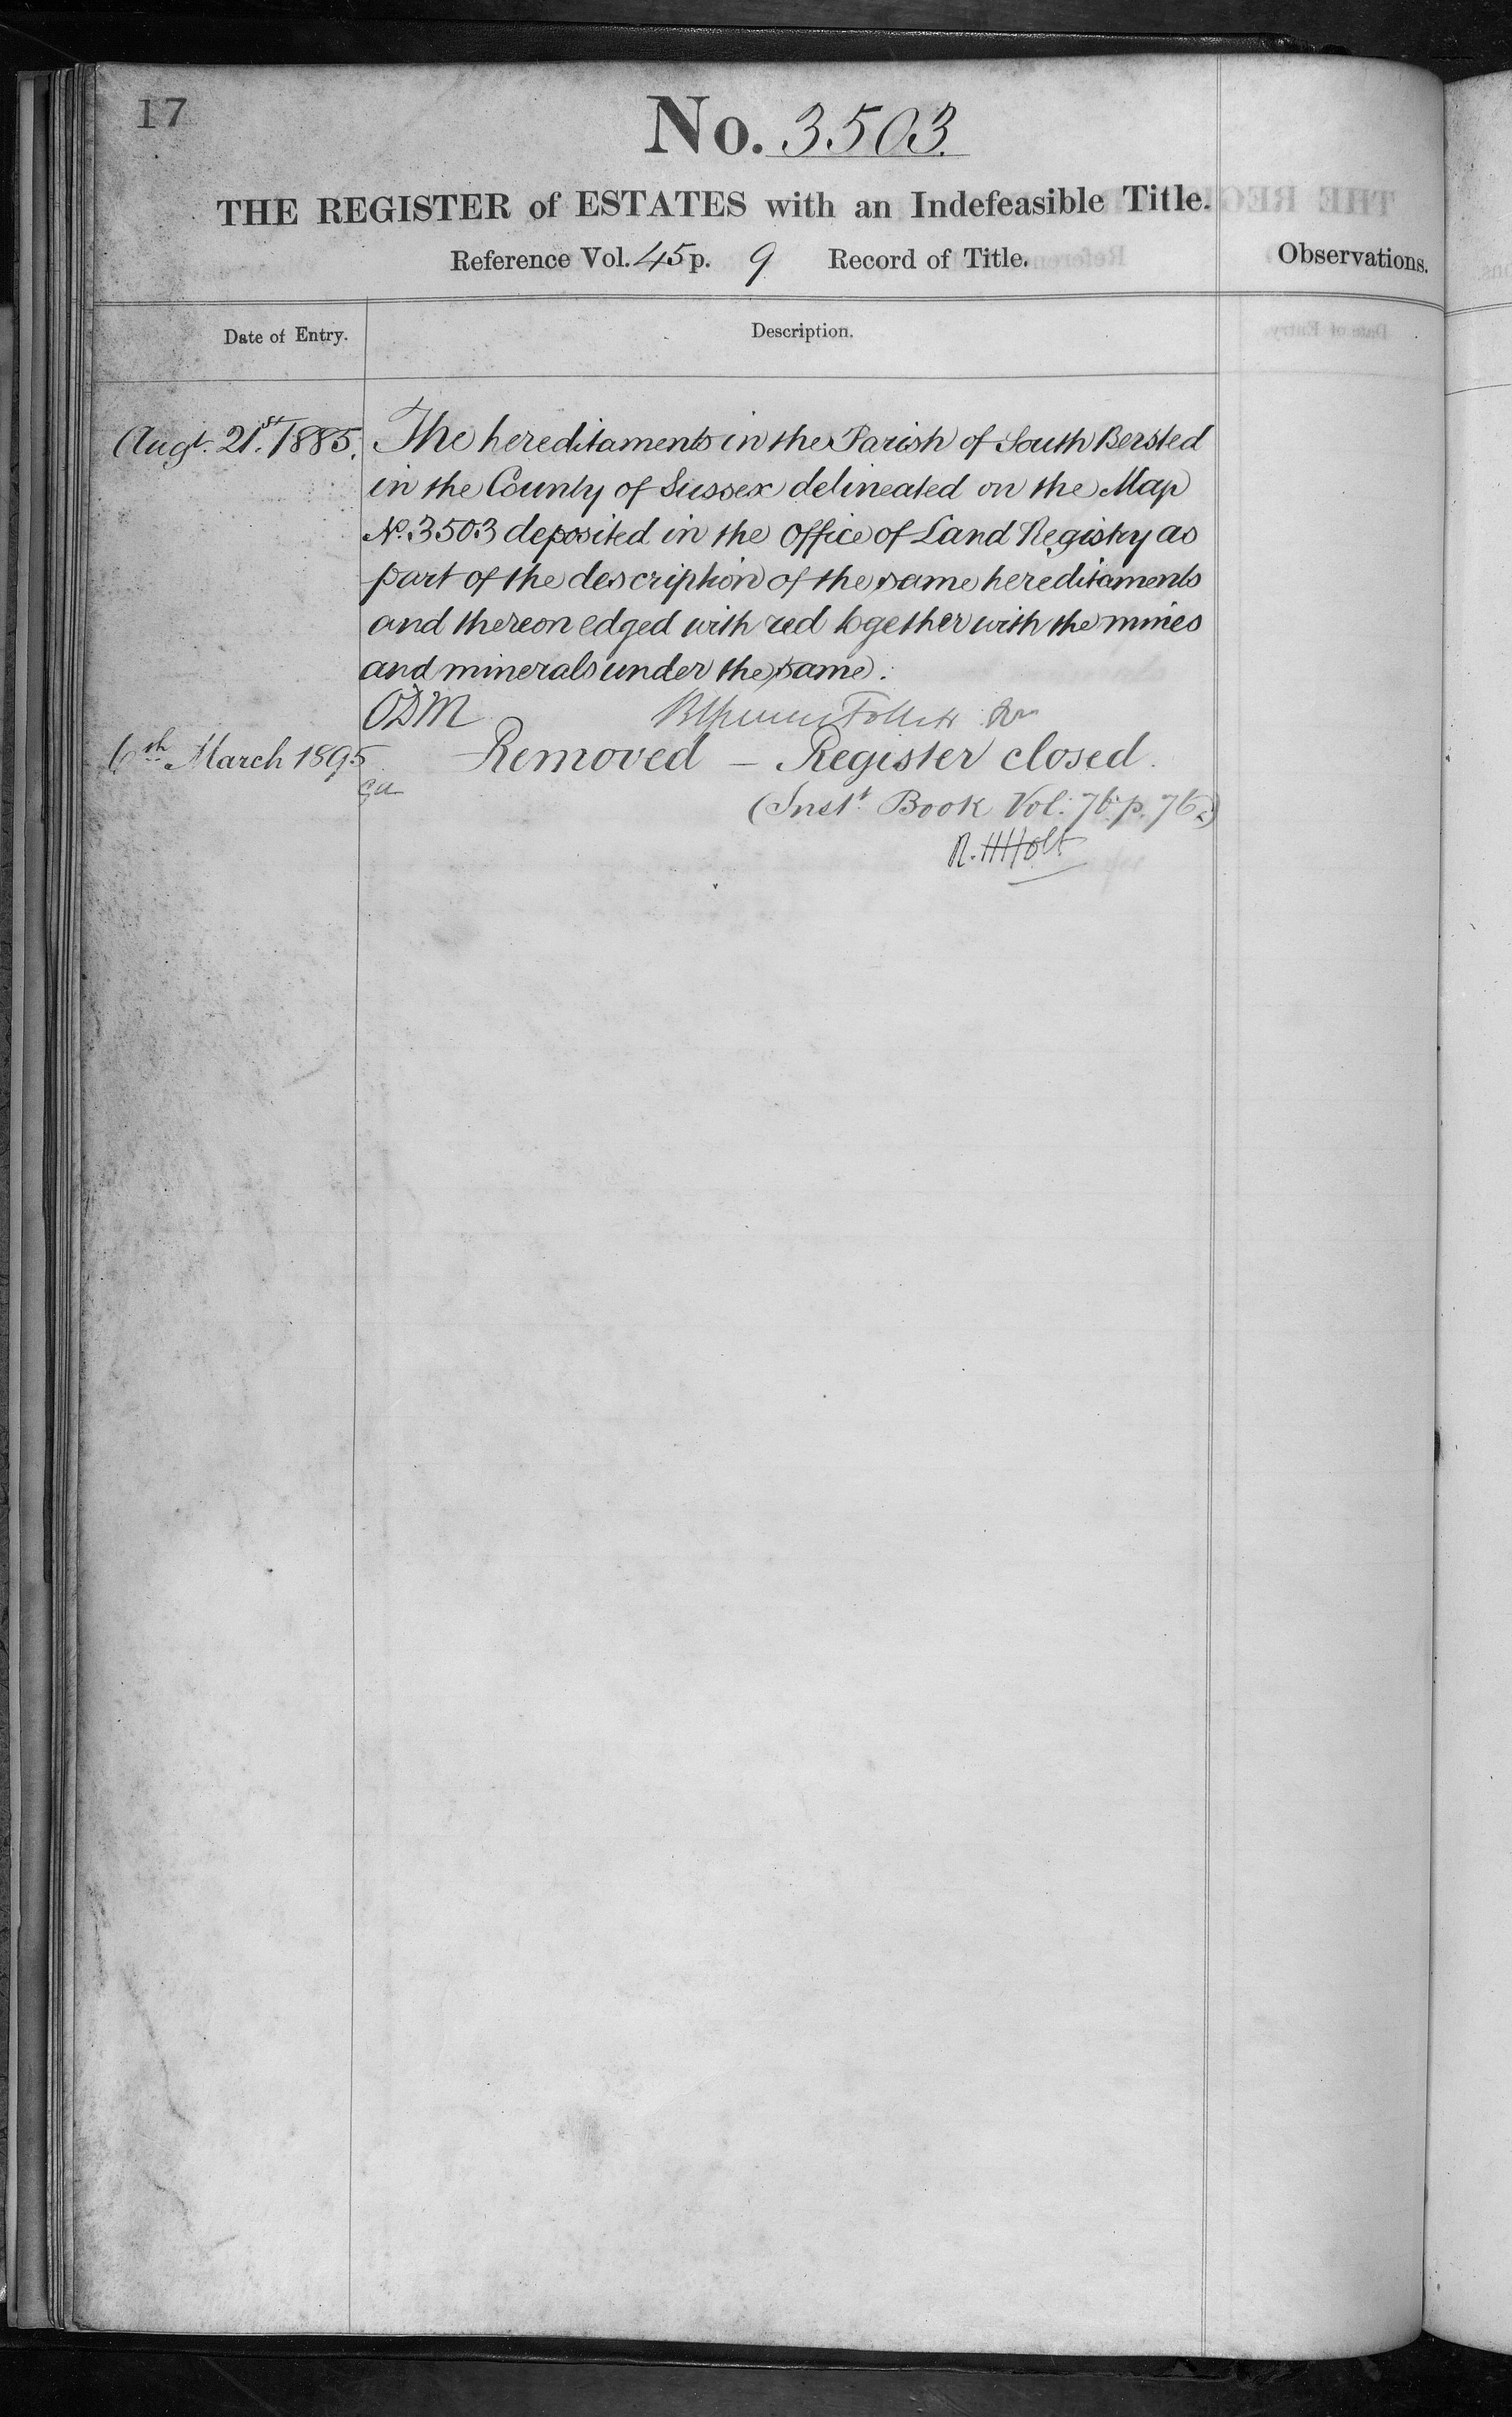 17
No. 3503.
THE REGISTER of ESTATES with an Indefeasible Title.
Reference Vol. 45 p. 9 Record of Title.
Observations.
Date of Entry.
Description.
Augt. 21st. 1885. The hereditaments in the Parish of South Bersted
in the County of Sussex delineated on the Map
No. 3503 deposited in the Office of Land Registry as
part of the description of the same hereditaments
and thereon edged with red together with the mines
and minerals under the same.
ODM
6th March 1895 Removed – Register closed.
(Inst. Book Vol. 76 p. 76.)
R. H Holt